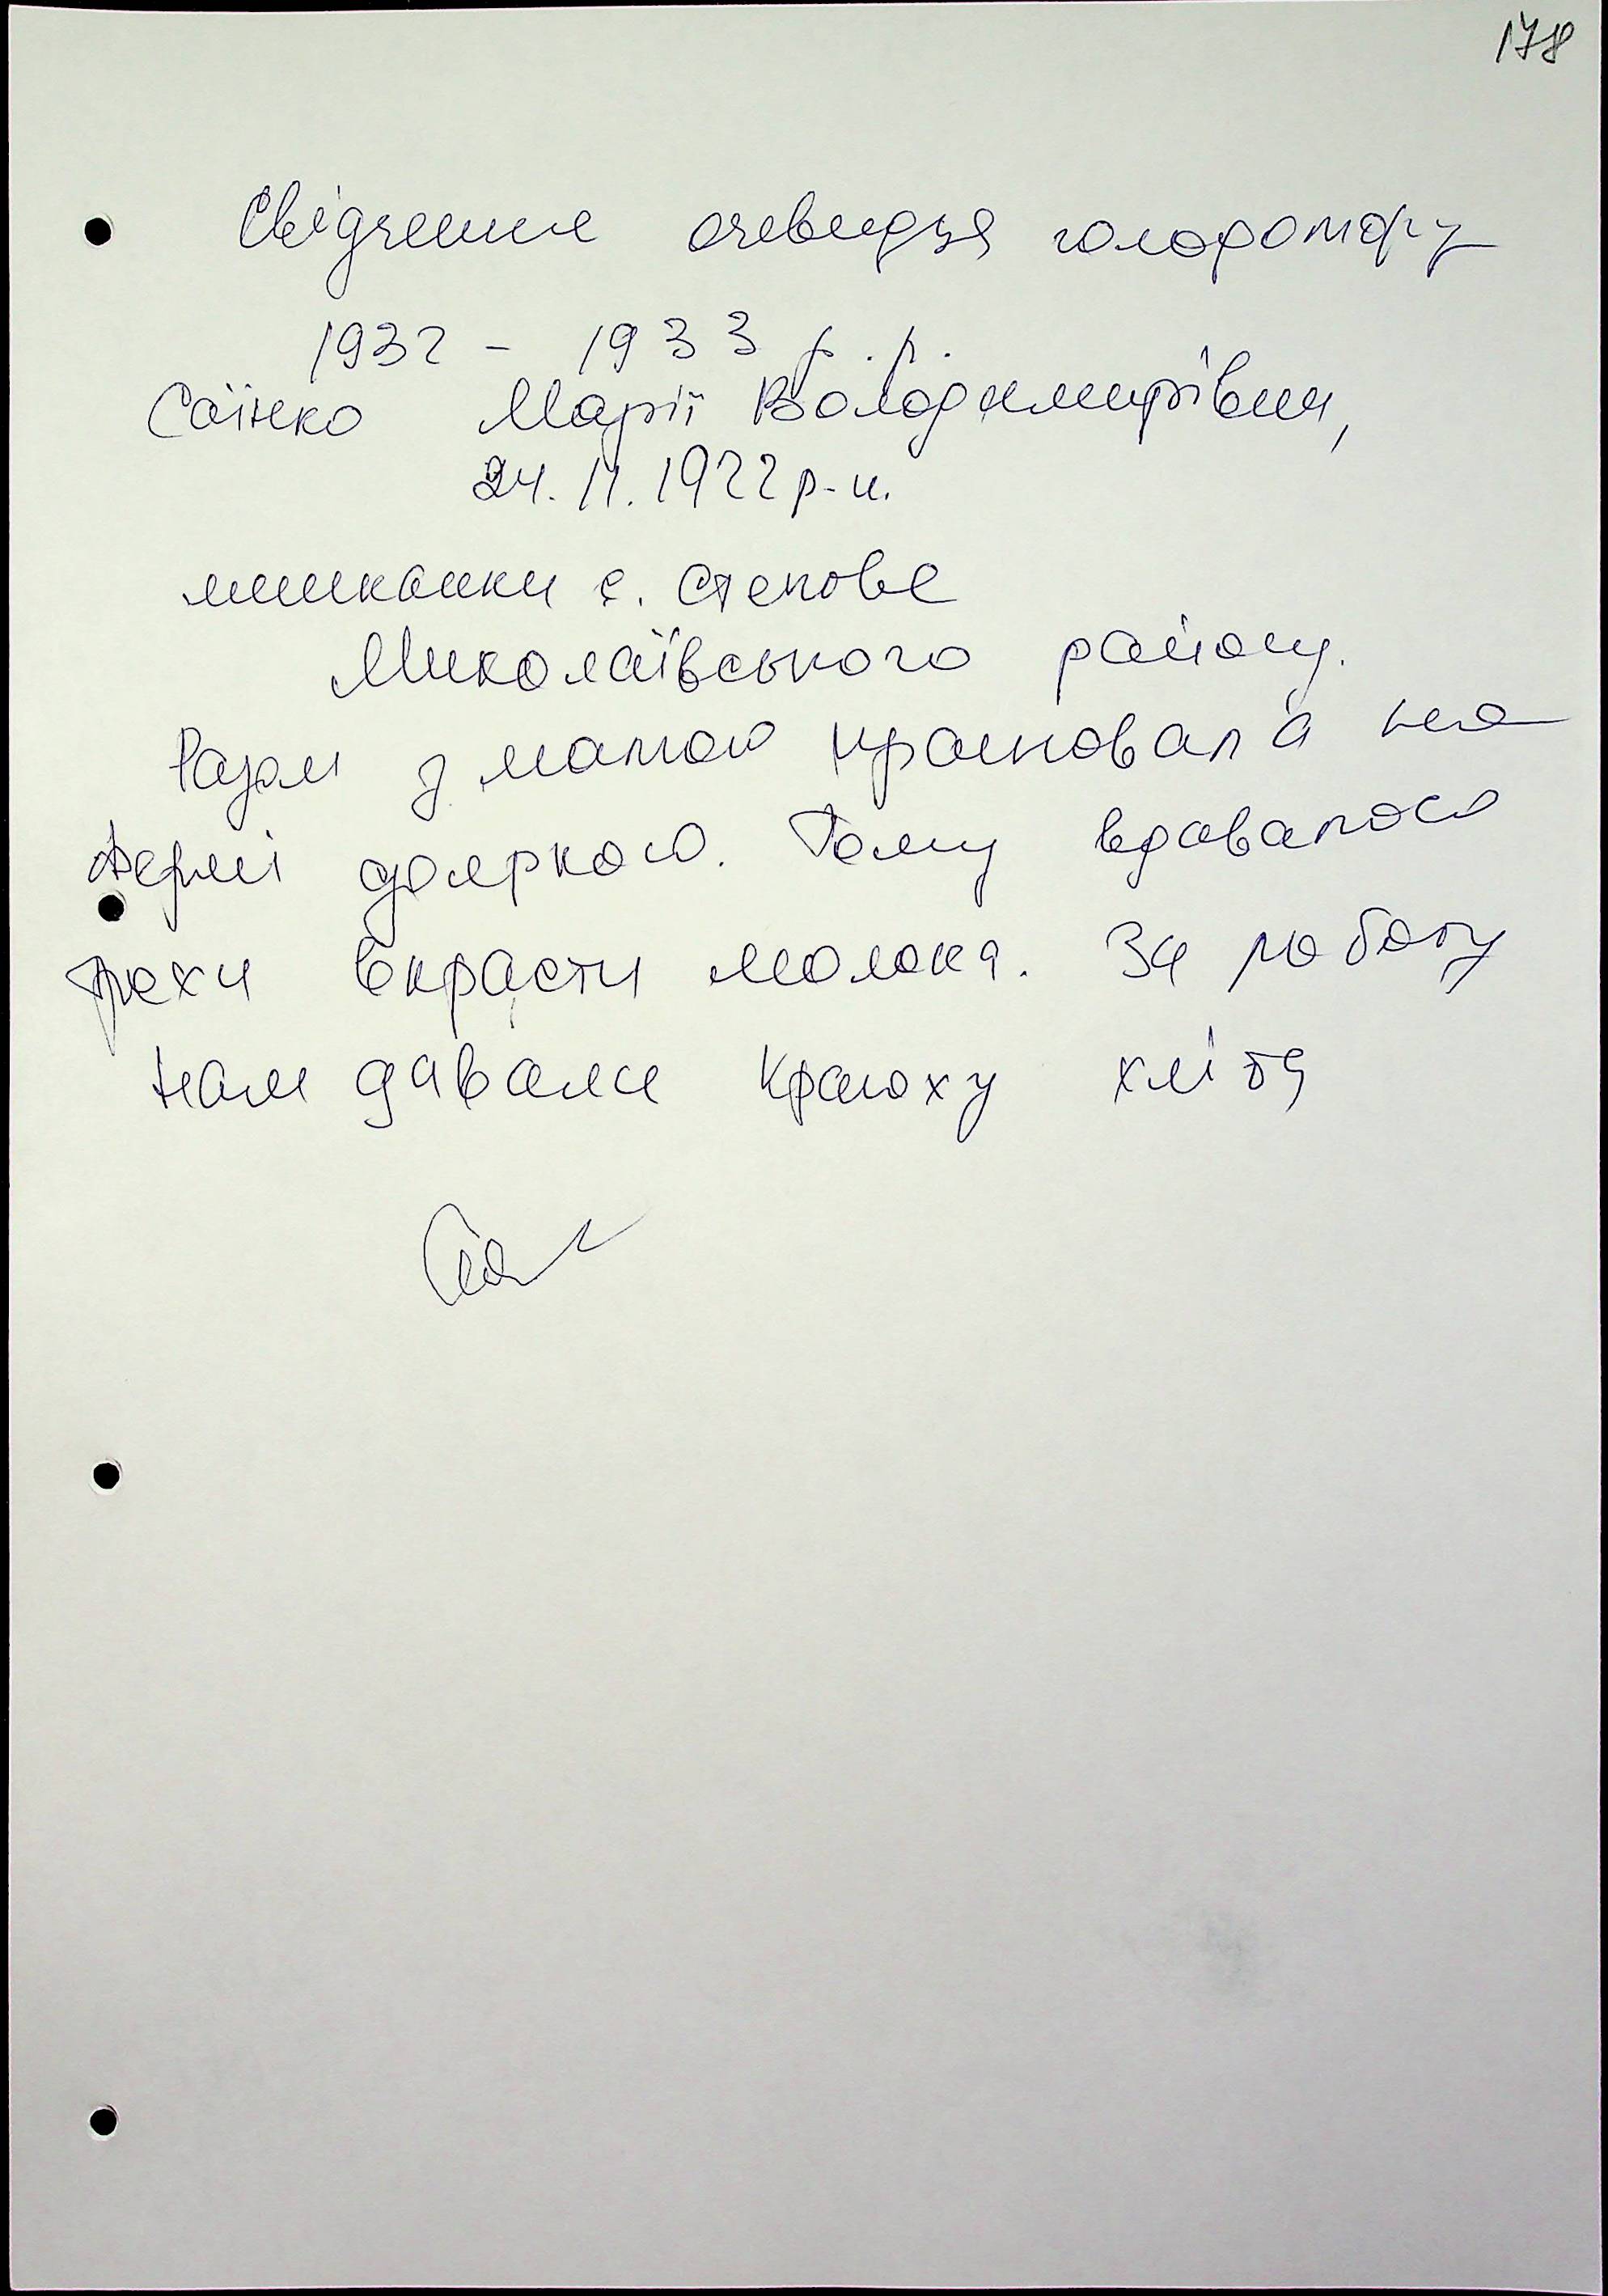 178
Свідчення очевидця голодомору
1932 - 1933 р.р.
Саїнко Марії Володимирівни,
24.11.1922 р-н.
мешканки с. Степове
Миколаївського району.
Разом з мамою працювала на
фермі дояркою. Тому вдавалося
трохи вкрасти молока. За работу
нам давали краюху хліба